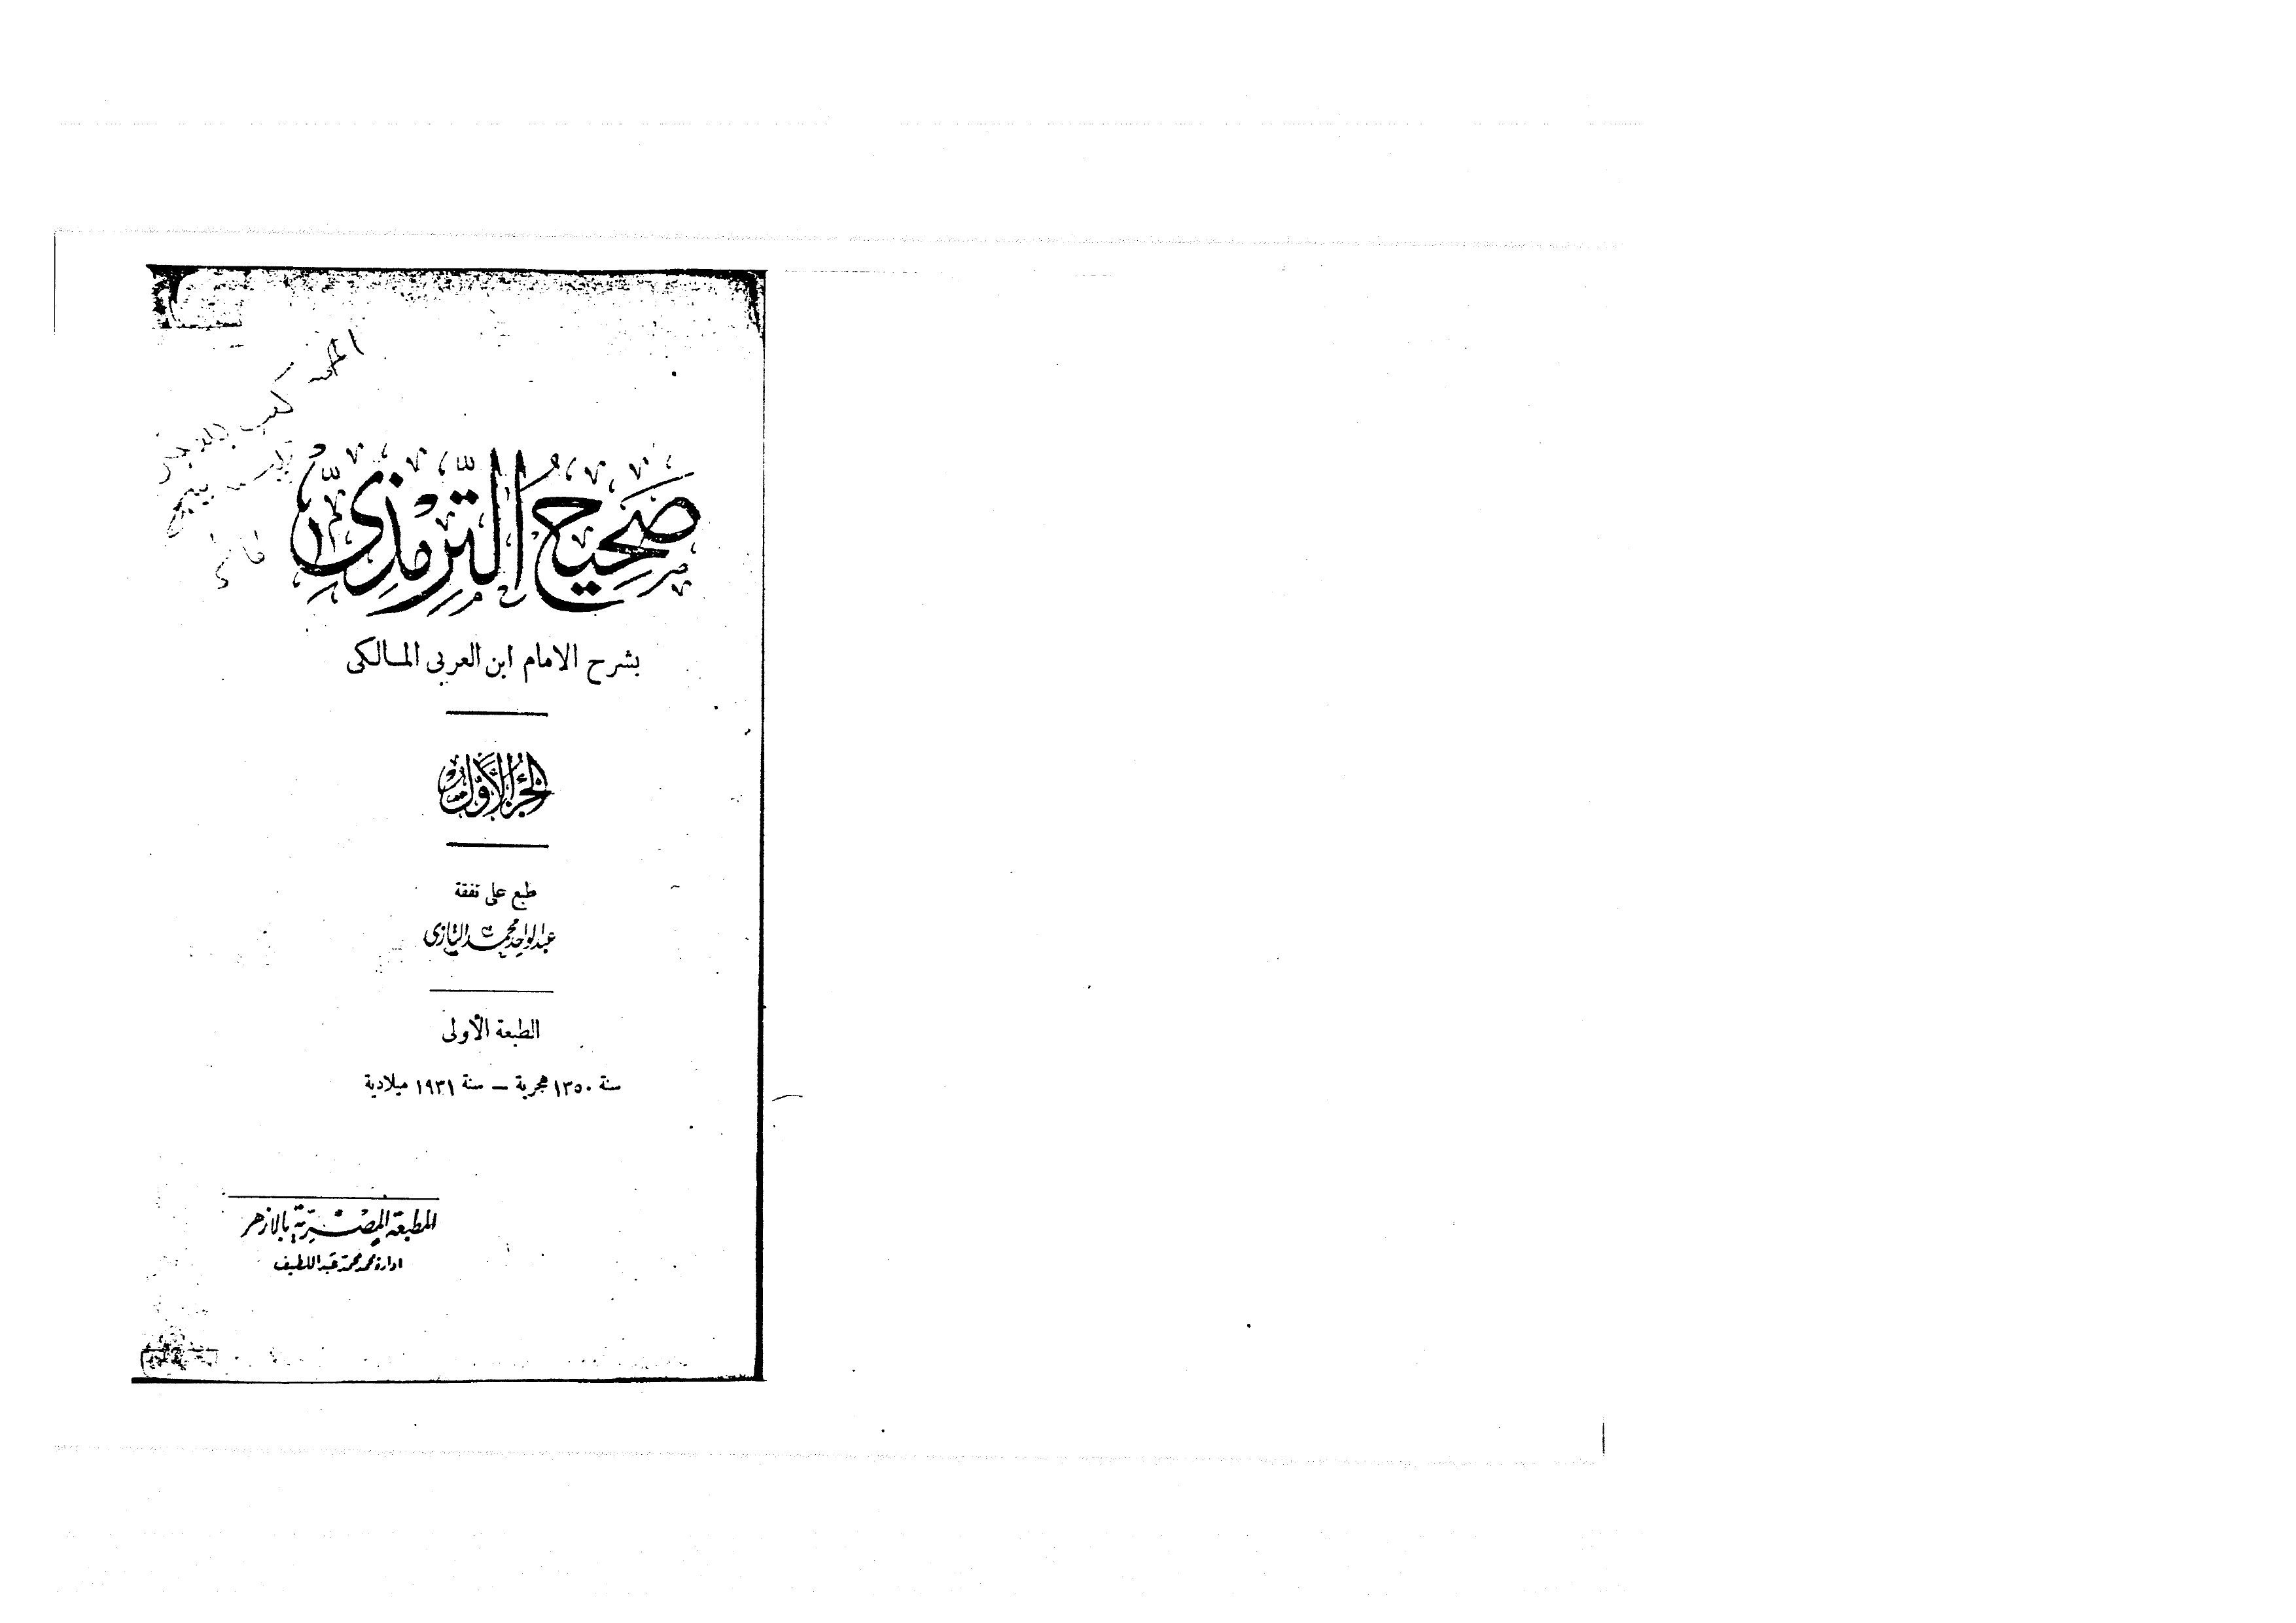 صَحِيحُ التِّرْمِذِىّ
بشرح الامام ابن العربى المالكى
الجزء الأول
طبع على نفقة
عبد الواحد محمد التازى
الطبعة الأولى
سنة ١٣٥٠ هجرية — سنة ١٩٣١ ميلادية
المطبعة المصرية بالازهر
ادارة محمد محمد عبد اللطيف